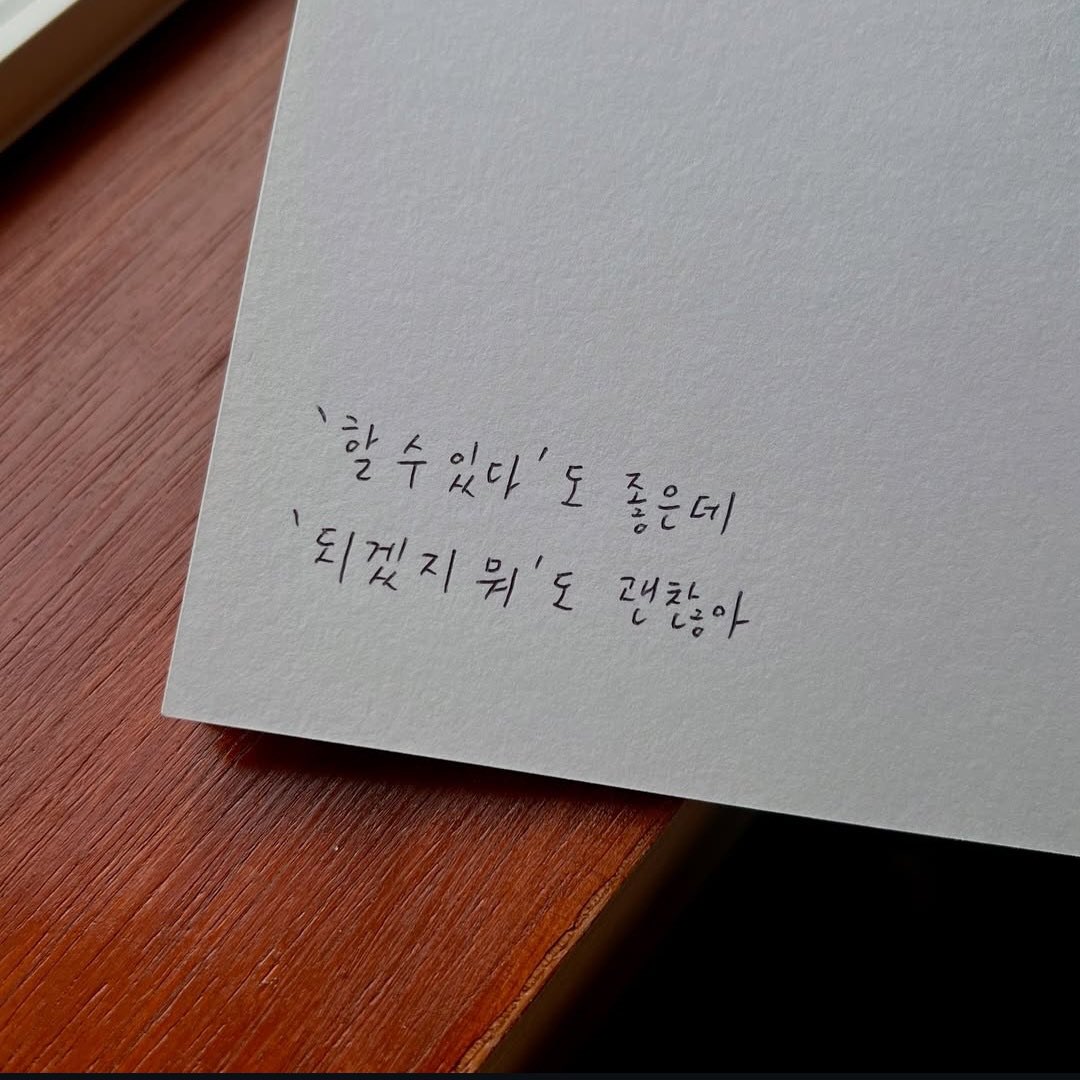 '할 수 있다'도 좋은데
'되겠지 뭐'도 괜찮아